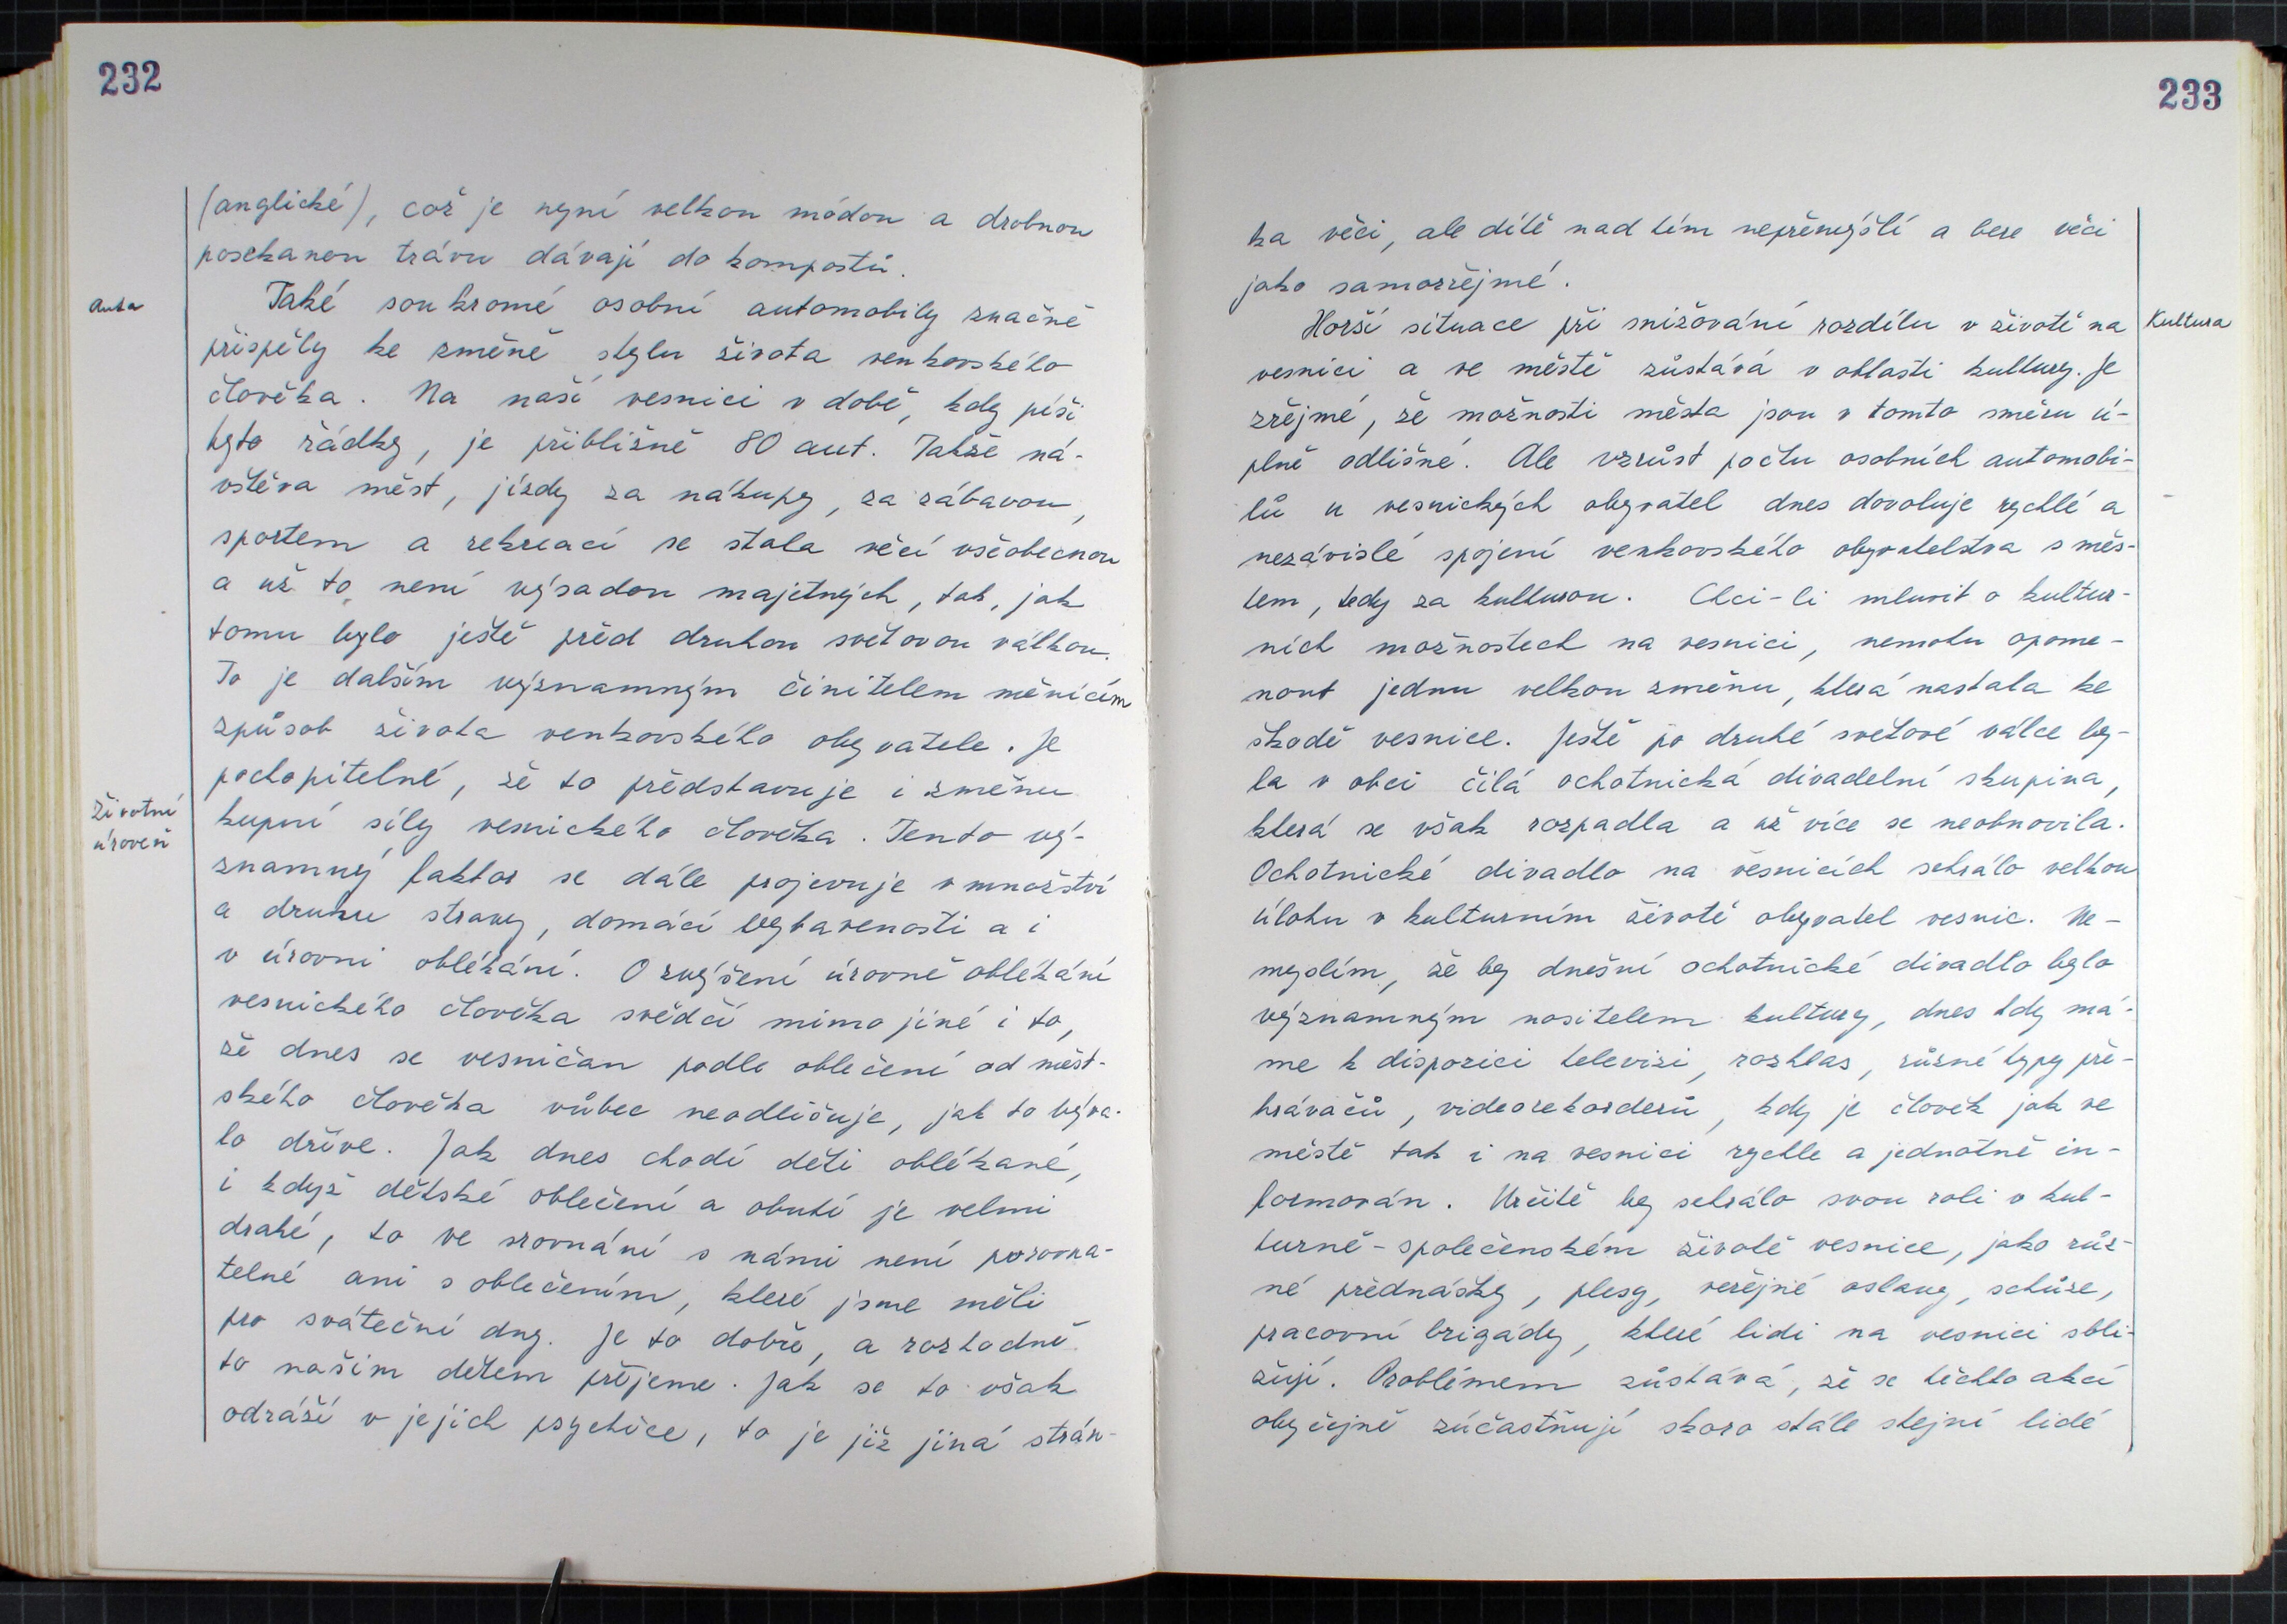 232
(anglické), což je nyní velkou módou a drobnou
posekanou trávu dávají do kompostů.
Auta
Také soukromé osobní automobily značně
přispěly ke změně stylu života venkovského
člověka. Na naší vesnici v době, kdy píši
tyto řádky, je přibližně 80 aut. Takže ná-
vštěva měst, jízdy za nákupy, za zábavou,
sportem a rekreací se stala věcí všeobecnou
a už to není výsadou majetných, tak, jak
tomu bylo ještě před druhou světovou válkou.
To je dalším významným činitelem měnícím
způsob života venkovského obyvatele. Je
pochopitelné, že to představuje i změnu
Životní
úroveň
kupní síly vesnického člověka. Tento vý-
znamný faktor se dále projevuje v množství
a druhu stravy, domácí vybavenosti a i
v úrovni oblékání. O zvýšení úrovně oblékání
vesnického člověka svědčí mimo jiné i to,
že dnes se vesničan podle oblečení od měst-
ského člověka vůbec neodlišuje, jak to býva-
lo dříve. Jak dnes chodí děti oblékané,
i když dětské oblečení a obutí je velmi
drahé, to ve srovnání s námi není porovna-
telné ani s oblečením, které jsme měli
pro sváteční dny. Je to dobře, a rozhodně
to našim dětem přejeme. Jak se to však
odráží v jejich psychice, to je již jiná strán-
233
ka věci, ale dítě nad tím nepřemýšlí a bere věci
jako samozřejmé.
Kultura
Horší situace při snižování rozdílu v životě na
vesnici a ve městě zůstává v oblasti kultury. Je
zřejmé, že možnosti města jsou v tomto směru ú-
plně odlišné. Ale vzrůst počtu osobních automobi-
lů u vesnických obyvatel dnes dovoluje rychlé a
nezávislé spojení venkovského obyvatelstva s měs-
tem, tedy za kulturou. Chci-li mluvit o kultur-
ních možnostech na vesnici, nemohu opome-
nout jednu velkou změnu, která nastala ke
škodě vesnice. Ještě po druhé světové válce by-
la v obci čilá ochotnická divadelní skupina,
která se však rozpadla a už více se neobnovila.
Ochotnické divadlo na vesnicích sehrálo velkou
úlohu v kulturním životě obyvatel vesnic. Ne-
myslím, že by dnešní ochotnické divadlo bylo
významným nositelem kultury, dnes kdy má-
me k dispozici televizi, rozhlas, různé typy pře-
hrávačů, videorekorderů, kdy je člověk jak ve
městě tak i na vesnici rychle a jednotně in-
formován. Určitě by sehrálo svou roli v kul-
turně-společenském životě vesnice, jako růz-
né přednášky, plesy, veřejné oslavy, schůze,
pracovní brigády, které lidi na vesnici sbli-
žují. Problémem zůstává, že se těchto akcí
obyčejně zúčastňují skoro stále stejní lidé